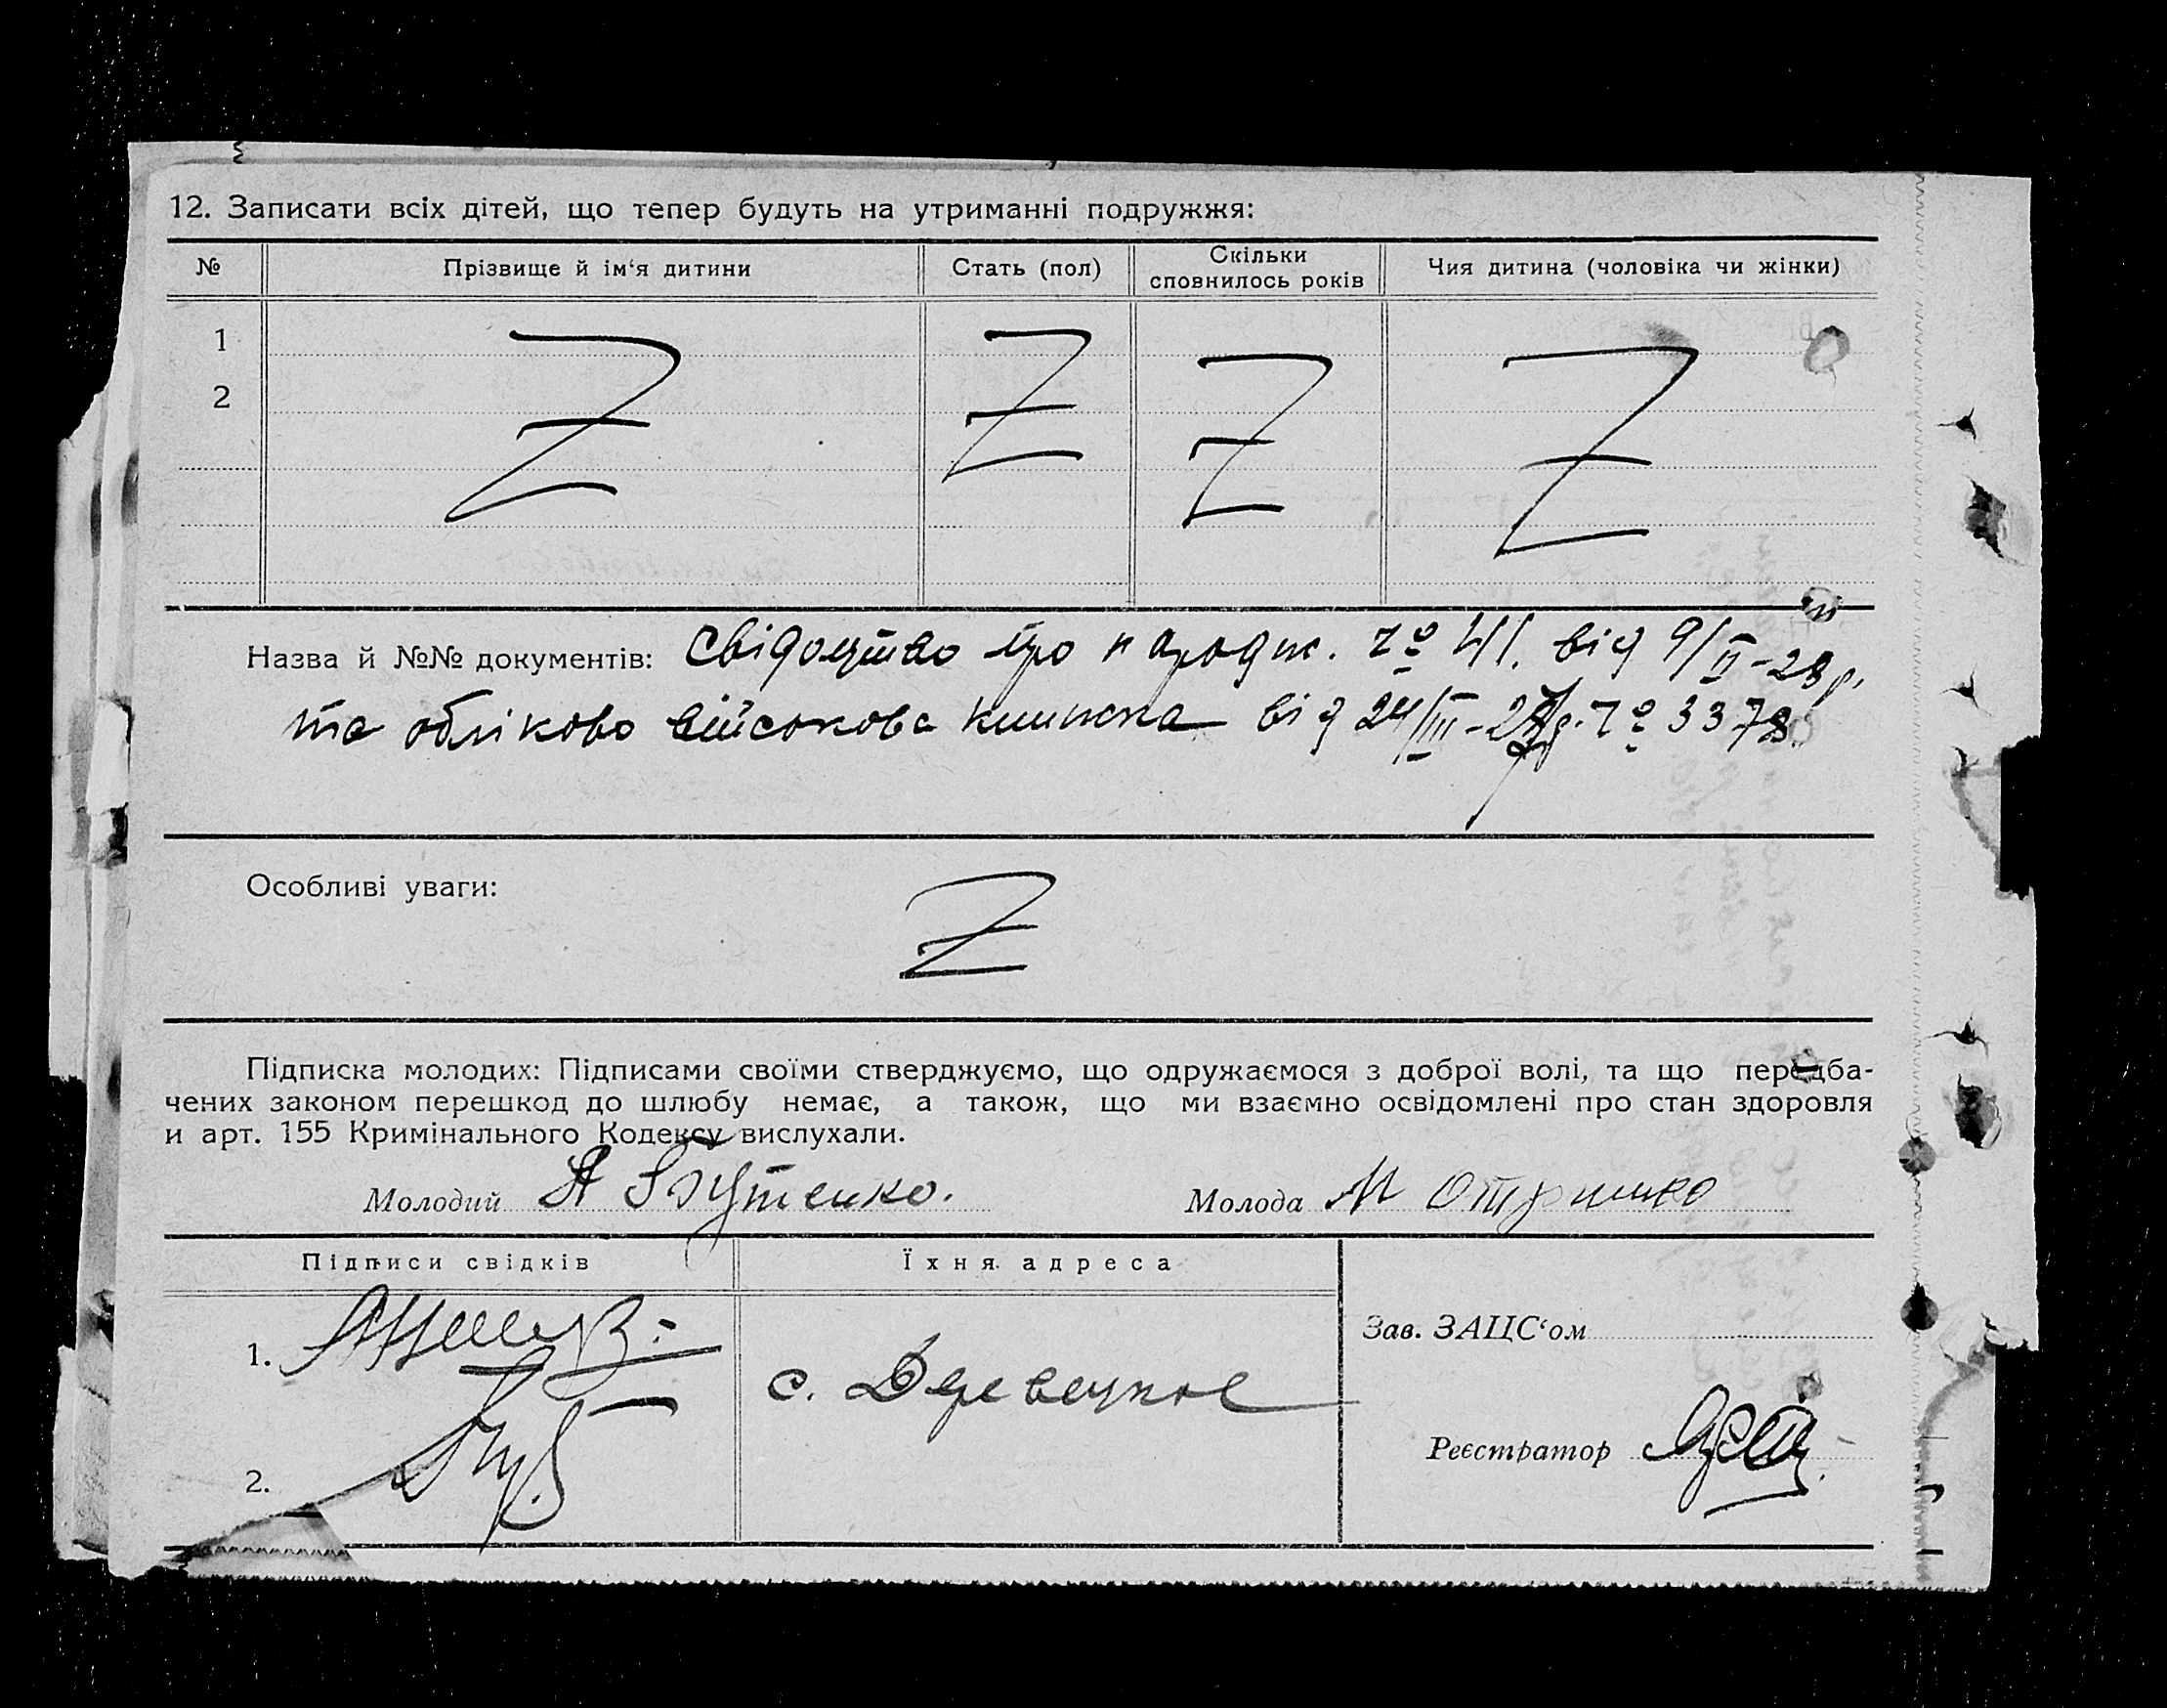 12. Записати всіх дітей, що тепер будуть на утриманні подружжя:
№ Прізвище й ім‘я дитини Стать (пол) Скільки сповнилось років Чия дитина (чоловіка чи жінки)
1 Z Z Z Z
2
Назва й №№ документів: Свідоцтво про народж. № 41. від 9/II-28 р.
та обліково військова книжка від 24/III-27 р. № 3378.
Особливі уваги: Z
Підписка молодих: Підписами своїми стверджуємо, що одружаємося з доброї волі, та що передба-
чених законом перешкод до шлюбу немає, а також, що ми взаємно освідомлені про стан здоровля
и арт. 155 Кримінального Кодексу вислухали.
Молодий Я Бутенко. Молода М Отришко
Підписи свідків Їхня адреса
Зав. ЗАЦС‘ом
1.
с.
Реєстратор
2.